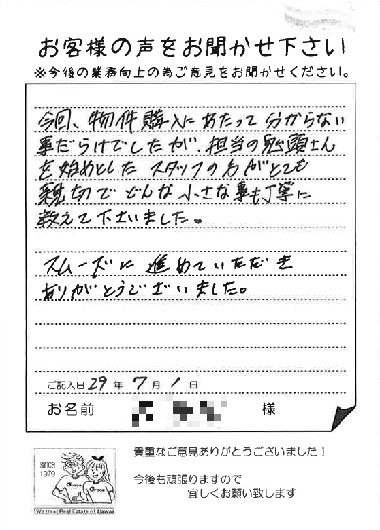 お客様の声をお聞かせ下さい
※今後の業務向上の為ご意見をお聞かせください。
今回、物件購入にあたって分からない
事だらけでしたが、担当の鬼頭さん
を始めとしたスタッフの方がとても
親切でどんな小さな事も丁寧に
教えて下さいました。
スムーズに進めていただき
ありがとうございました。
ご記入日 29 年 7 月 1 日
お名前 様
貴重なご意見ありがとうございました！
今後も頑張りますので
宜しくお願い致します
SINCE
1979